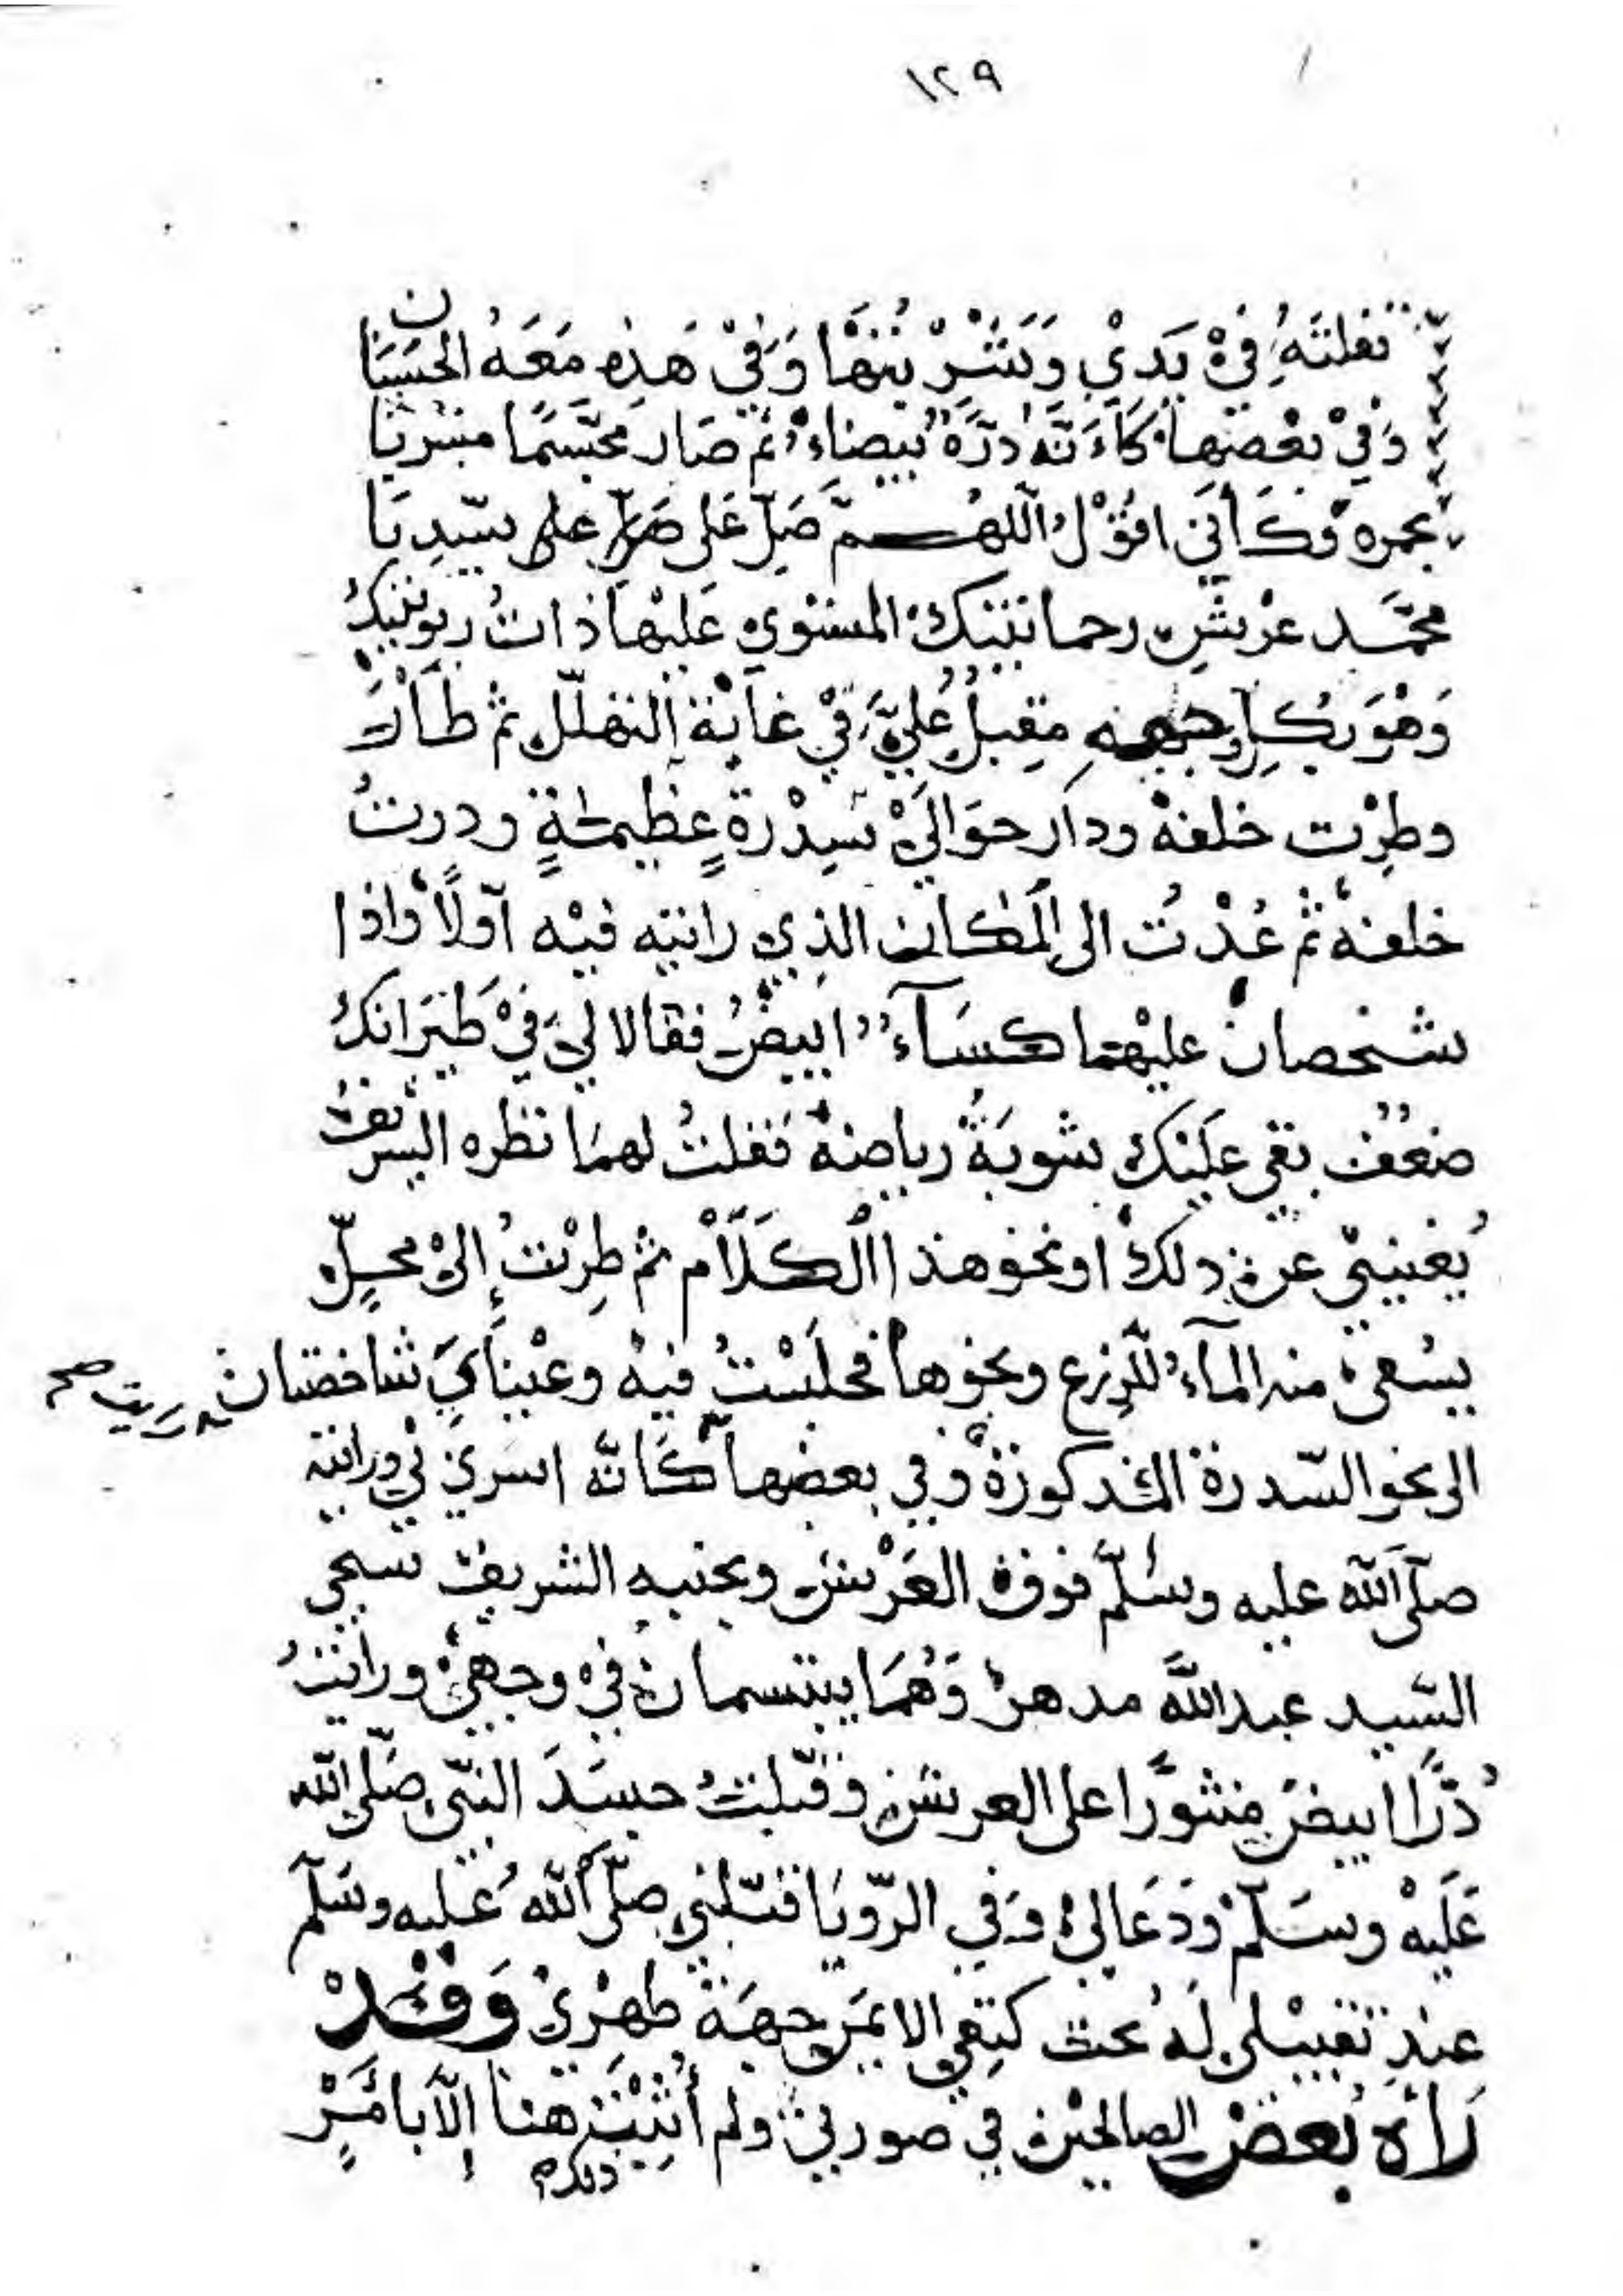 ١٢٩
تفلته في يدي وشربتها وفي هذه معه الحسنان
وفي بعضها كأنه درة بيضاء ثم صار مجسما مبشرتا
بحمرة وكأني اقول اللهم صل على صل على سيدنا
محمد عرش رحمانيتك المستوي عليها ذات ربوبيتك
وهو بكل وجهه مقبل علي في غاية التهلل ثم طار
وطرت خلفه ودار حوالي سدرة عظيمة ودرت
خلفه ثم عدت الى المكان الذي رايته فيه أولا واذا
شخصان عليهما كساء ابيض فقالا لي في طيرانك
ضعف بقي عليك شوية رياضة فقلت لهما نظره الشريف
يغنيني عن ذلك او نحو هذا الكلام ثم طرت إلى محل
يسعى منه الماء للزرع ونحوها فجلست فيه وعيناي شاخصتان
الى نحو السدرة المذكورة وفي بعضها كأنه اسري بي ورايته
صلى الله عليه وسلم فوق العرش وبجنبه الشريف شيخي
السيد عبدالله مدهر وهما يبتسمان في وجهي ورايت
درا ابيض منثورا على العرش وقبلت جسد النبي صلى الله
عليه وسلم ودعا لي وفي الرويا قبلني صلى الله عليه وسلم
عند تقبيلي له تحت كتفي الايمن جهة ظهري وقد
رآه بعض الصالحين في صورتي ولم أثبت هنا إلا بامر